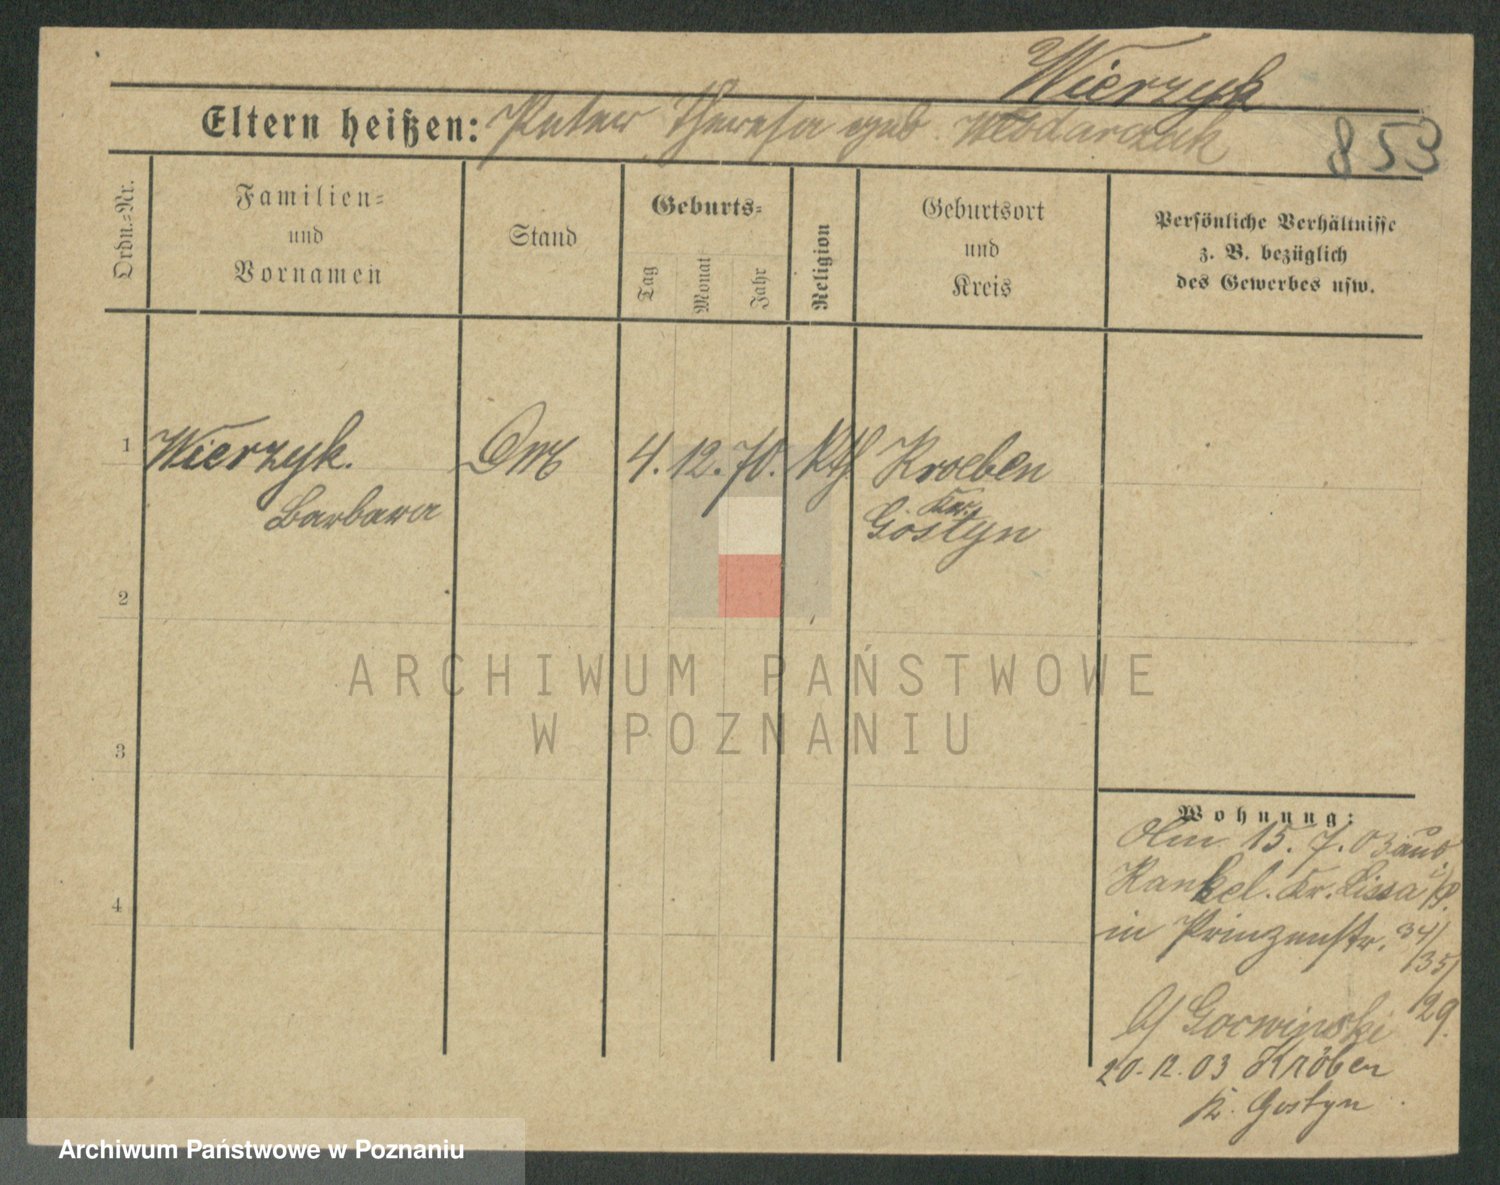 Wierzyk
Eltern heißen: Peter Theresa geb. Wlodarczak
853
Ordn.-Nr.
Familien-
und
Vornamen
Stand
Geburts-
Tag
Monat
Jahr
Religion
Geburtsort
und
Kreis
Persönliche Verhältnisse
z. B. bezüglich
des Gewerbes usw.
1 Wierzyk. 4. 12. 70. Kth Kroeben
Barbara Kr.
Gostyn
2
3
4
ARCHIWUM PAŃSTWOWE
W POZNANIU
Wohnung:
15. 7. 03 aus
Kankel. Kr. Lissa
in Prinzenstr. 34/
35/
b/ Gorwinski 29.
20. 12. 03 Kröben
K. Gostyn
Archiwum Państwowe w Poznaniu